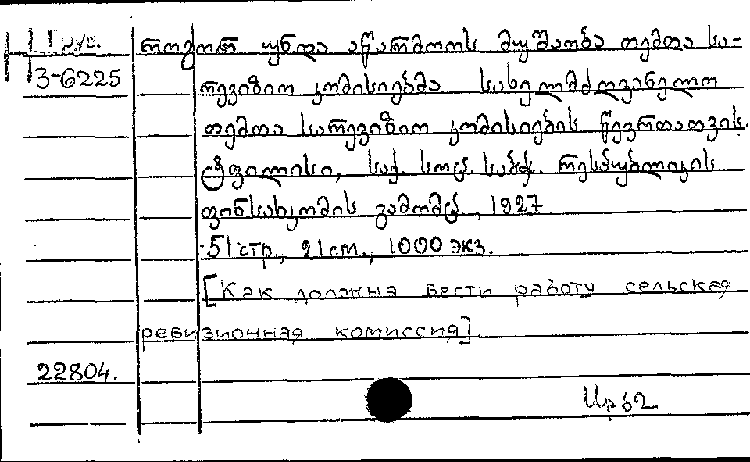 Груз.
3-6225
როგორ უნდა აწარმოოს მუშაობა თემთა სა-
რევიზიო კომისიებმა სახელმძღვანელო
თემთა სარევიზიო კომისიების წევრთათვის.
ტფილისი, საქ. სოც. საბჭ. რესპუბლიკის
ფინსახკომის გამომც., 1927
51 стр, 21 cm., 1000 экз.
[Как должна вести работу сельская
ревизионная комиссия]
22804.